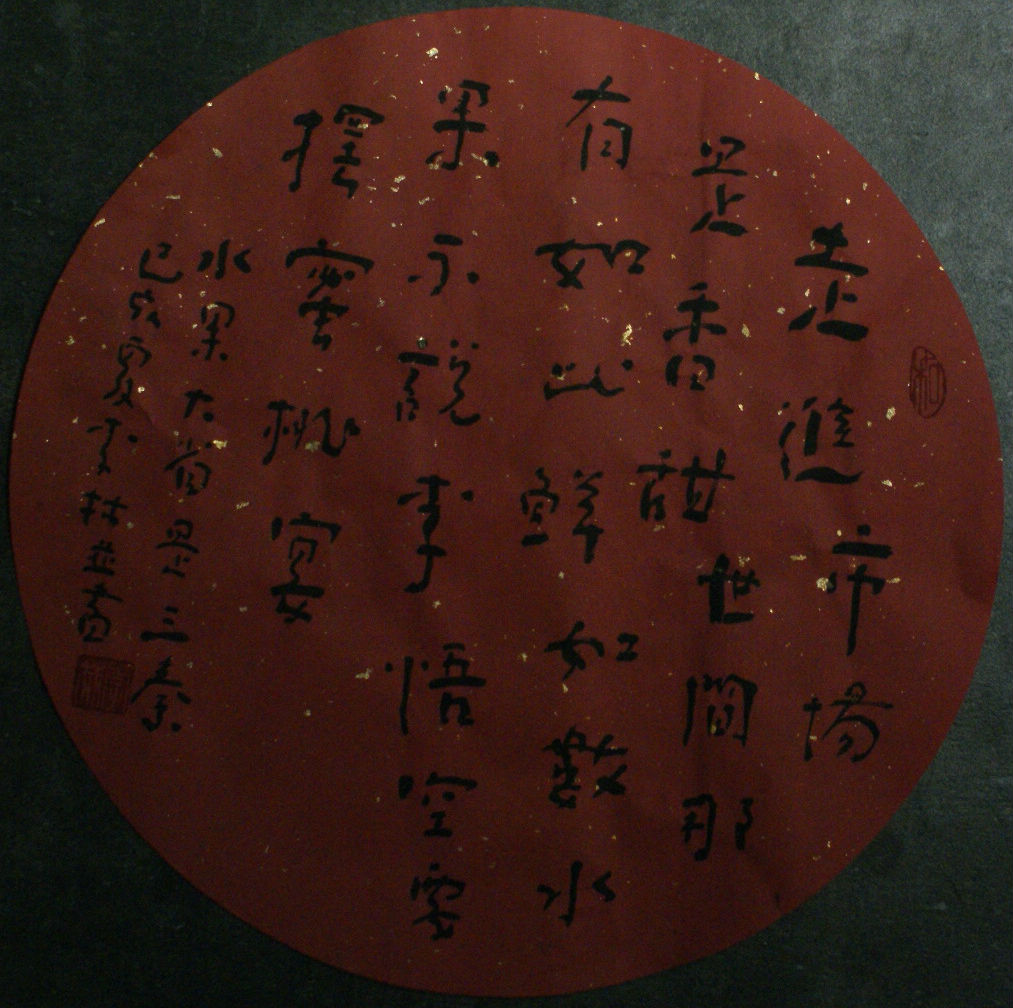 走進市場
是香甜世間那
有如此鮮如數水
果不說李悟空要
擺蜜桃宴
水果大省是三秦
己亥夏